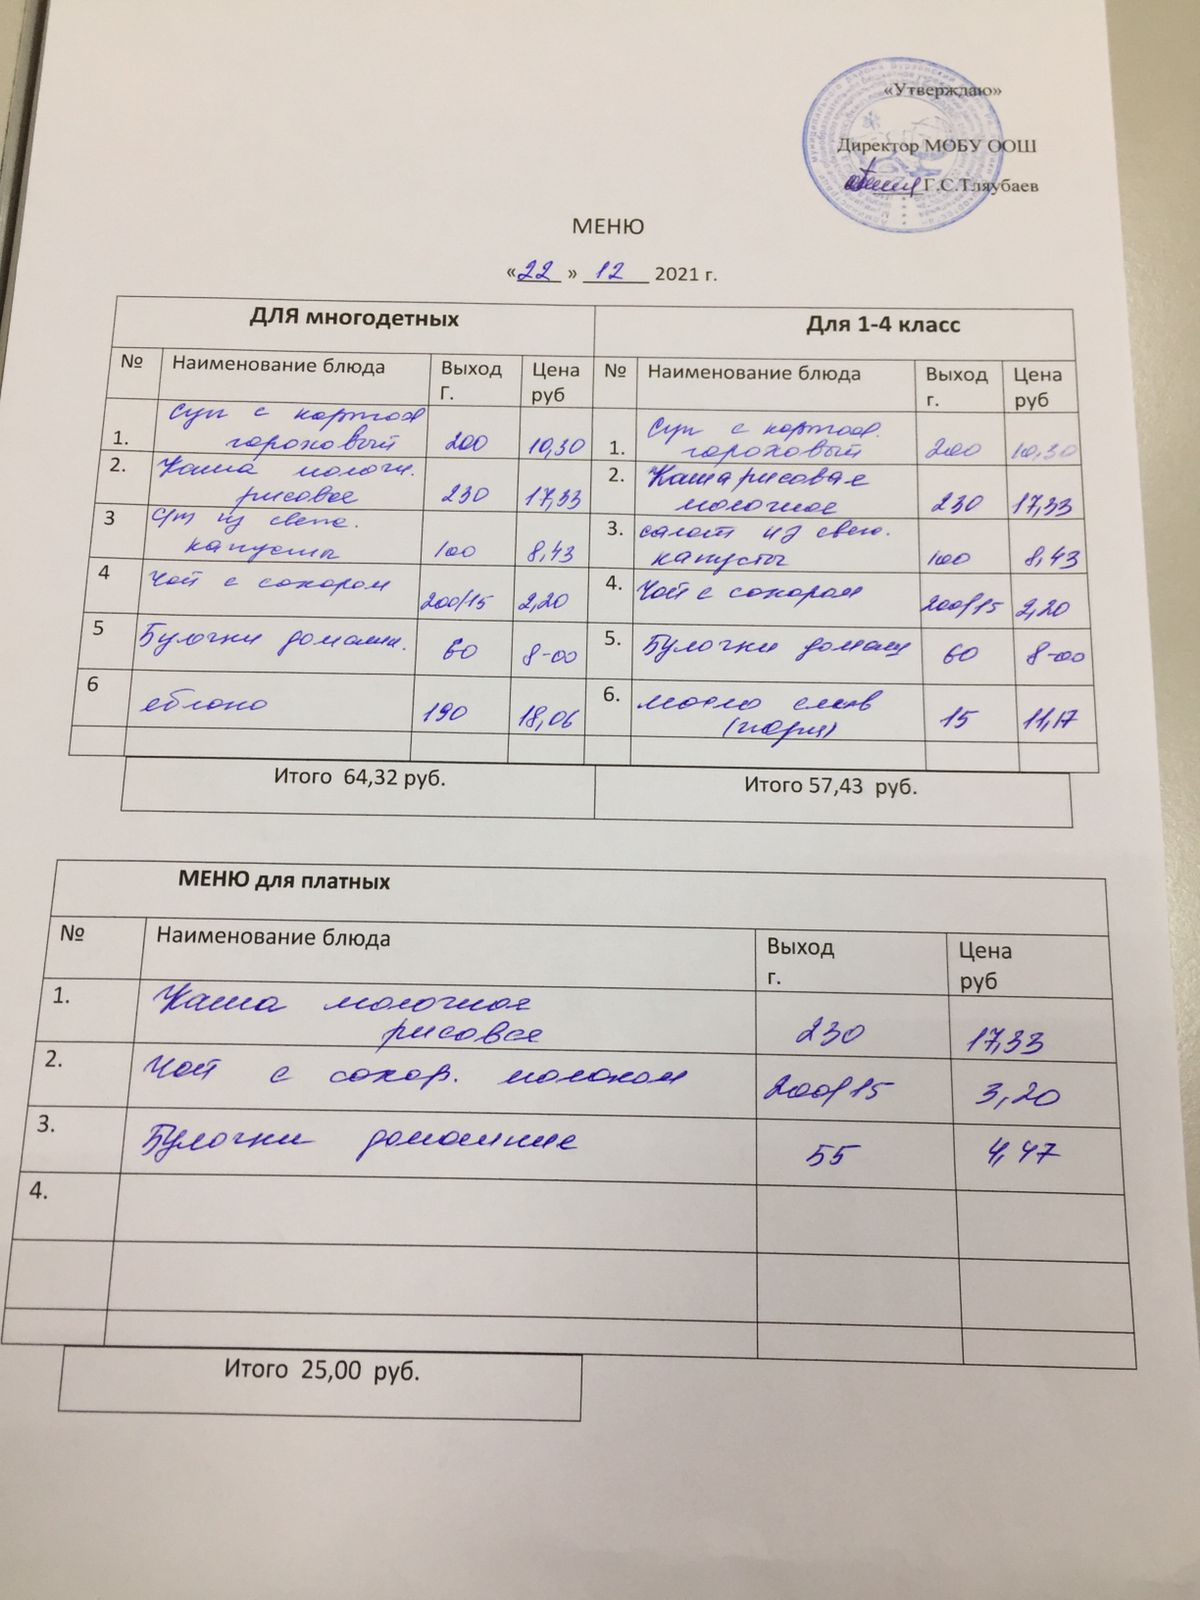 «Утверждаю»
Директор МОБУ ООШ
Г.С.Тляубаев
МЕНЮ
«22» 12 2021 г.
ДЛЯ многодетных Для 1-4 класс
№ Наименование блюда Выход г. Цена руб № Наименование блюда Выход г. Цена руб
1. Суп с картоф гороховый 200 10,30 1. Суп с картоф. гороховый 200 10,30
2. Каша молочн. рисовая 230 17,33 2. Каша рисовая молочная 230 17,33
3 из свеж. капусты 100 8,43 3. салат из свеж. капусты 100 8,43
4 Чай с сахаром 200/15 2,20 4. Чай с сахаром 200/15 2,20
5 Булочки домашн. 60 8-00 5. Булочки домаш 60 8-00
6 яблоко 190 18,06 6. масло слив 15 11,17
Итого 64,32 руб. Итого 57,43 руб.
МЕНЮ для платных
№ Наименование блюда Выход г. Цена руб
1. Каша молочная рисовая 230 17,33
2. Чай с сахар. молоком 200/15 3,20
3. Булочки домашние 55 4,47
4.
Итого 25,00 руб.